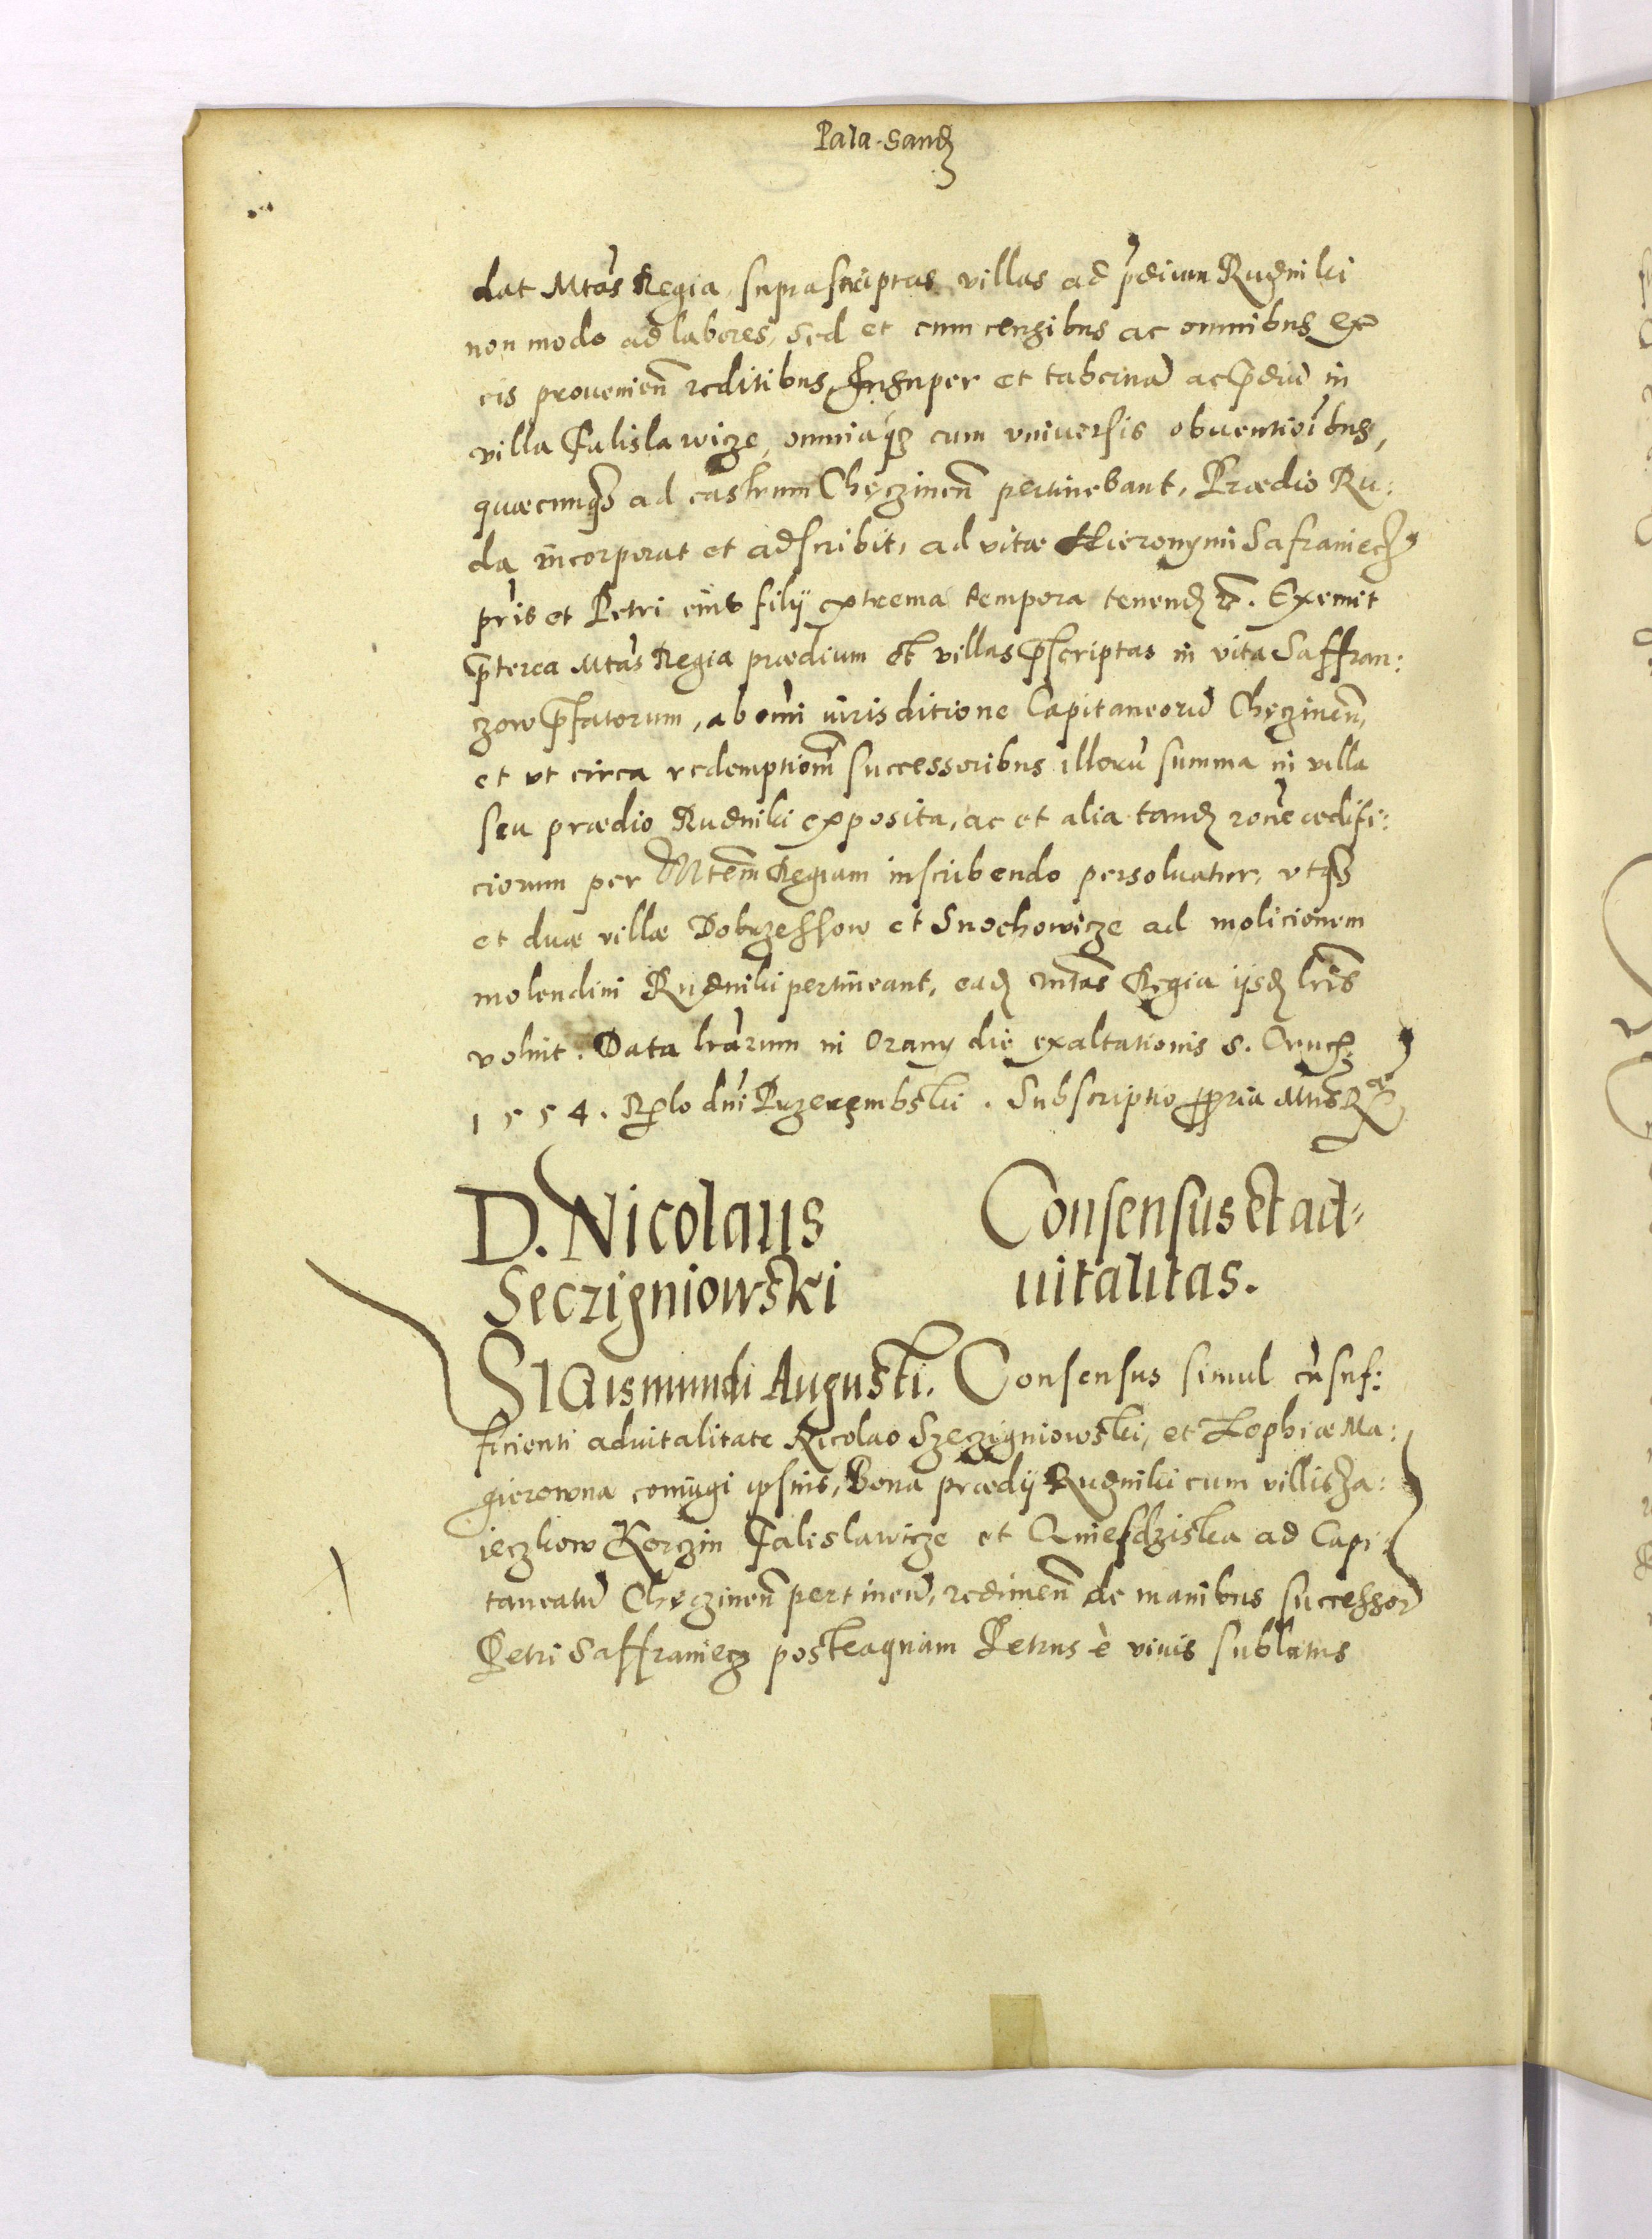 Pala. Sand
dat Mtas Regia suprascriptas villas ad pdium Rudniki
non modo ad labores, sed et cum censibus ac omnibus ex
eis prouenien reditibus Insuper et tabernā ac pdiū in
villa Falislawicze, omniaq3 cum vniuersis obuentioibus,
quæcunq3 ad castrum Chęczinen pertinebant, Prædio Ru:
da incorporat et adscribit, ad vitæ Hieronymi Safraniecz
pris et Petri eius filij extrema tempora tenend. Exemit
pterea Mtas Regia prædium et villas pscriptas in vita Saffran:
czow pfatorum, ab omi iurisditione Capitaneorū Chęczinen,
et vt circa redemptiom successoribus illorū summa in villa
seu prædio Rudniki exposita, ac et alia tand roue ædifi:
ciorum per Mtem Regiam inscribendo persoluatur, vtq3
et duæ villæ Dobrzessow et Snochowicze ad molicionem
molendini Rudniki pertineant, ead mtas Regia ijsd lris
voluit. Data lrarum in Orany die exaltationis S. Cruc
1554. Rlo dni Przerembski. Subscriptio ppria Mtis Ræ
D. Nicolaus
Seczigniowski
Consensus et ad=
uitalitas.
SIGismundi Augusti. Consensus simul cū suf:
ficienti aduitalitate Nicolao Szeczigniowski, et Zophiæ Ma:
gierowna coniugi ipsius, Bona prædij Rudniki cum villis Za:
ieczkow Korczin Falislawicze et Gniesdziska ad Capi:
taneatū Chęczinen pertinen, redimen de manibus successor
Petri Saffraniecz posteaquam Petrus è viuis sublatus